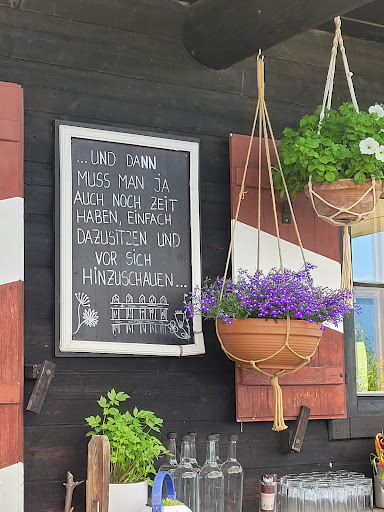 ...UND DANN
MUSS MAN JA
AUCH NOCH ZEIT
HABEN, EINFACH
DAZUSITZEN UND
VOR SICH
HINZUSCHAUEN...